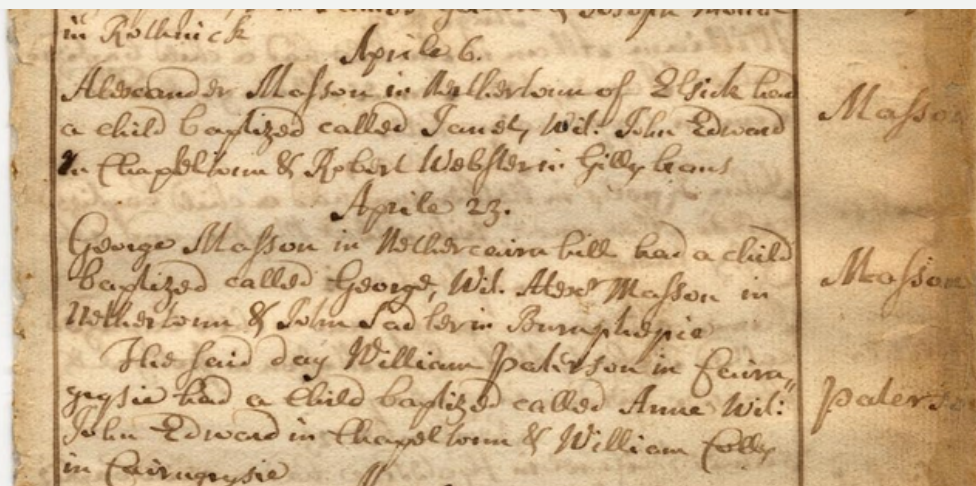 in Rothnick
Aprile 6.
Alexander Masson in Nethertoun of Elsick had
a child baptized called Janet, Wit. John Edward
in Chapeltoun & Robert Webster in Gillybrans
Aprile 23.
George Masson in Nethercairnhill had a child
baptized called George, Wit. Alexr Masson in
Nethertoun & John Sadler in Burnphepie
The said day William Paterson in Cairn„
grysie had a Child baptized called Anne Wit:
John Edward in Chapeltoun & William Colly
in Cairngrysie
Masson
Masson
Paterso